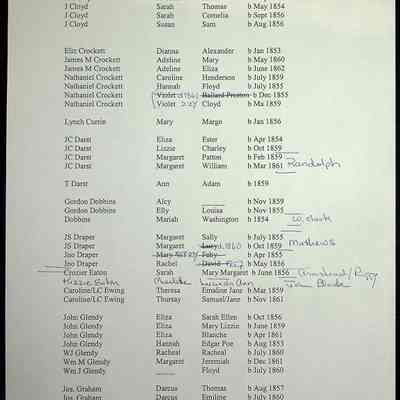 J Cloyd Sarah Thomas b May 1854
J Cloyd Sarah Cornelia b Sept 1856
J Cloyd Susan Sam b Aug 1856
Eliz Crockett Dianna Alexander b Jan 1853
James M Crockett Adeline Mary b May 1860
James M Crockett Adeline Eliza b June 1862
Nathaniel Crockett Caroline Henderson b July 1859
Nathaniel Crockett Hannah Floyd b July 1855
Nathaniel Crockett Violet Ballard Preston b Dec 1855
Nathaniel Crockett Violet Cloyd b Ma 1859
Lynch Currin Mary Margo b Jan 1856
JC Darst Eliza Ester b Apr 1854
JC Darst Lizzie Charley b Oct 1859
JC Darst Margaret Patton b Feb 1859
JC Darst Margaret William b Mar 1861 Randolph
T Darst Ann Adam b 1859
Gordon Dobbins Alcy b Nov 1859
Gordon Dobbins Elly Louisa b Nov 1855
Dobbins Mariah Washington b 1854
JS Draper Margaret Sally b July 1855
JS Draper Margaret Lucy d.1860 b Oct 1859 Mathews
Jno Draper Mary b Apr 1855
Jno Draper Rachel David b May 1856
Crozier Eaton Sarah Mary Margaret b June 1856
Caroline/LC Ewing Theresa Emaline Jane b Mar 1859
Caroline/LC Ewing Thursay Samuel/Jane b Nov 1861
John Glendy Eliza Sarah Ellen b Oct 1856
John Glendy Eliza Mary Lizzie b June 1859
John Glendy Eliza Blanche b Apr 1861
John Glendy Hannah Edgar Poe b Aug 1853
WJ Glendy Racheal Racheal b July 1860
Wm M Glendy Margaret Jeremiah b Dec 1861
Wm J Glendy Floyd b July 1860
Jos. Graham Darcus Thomas b Aug 1857
Jos. Graham Darcus Emiline b July 1860